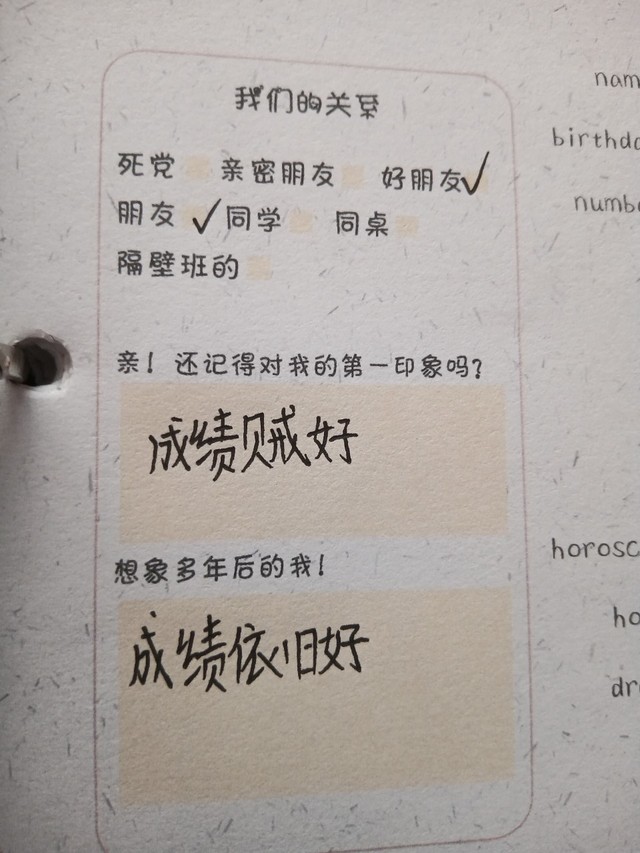 我们的关系
死党 亲密朋友 好朋友✓
朋友 ✓同学 同桌
隔壁班的
亲！还记得对我的第一印象吗？
成绩贼好
想象多年后的我！
成绩依旧好
nam
birthda
numbe
horosc
ho
dr